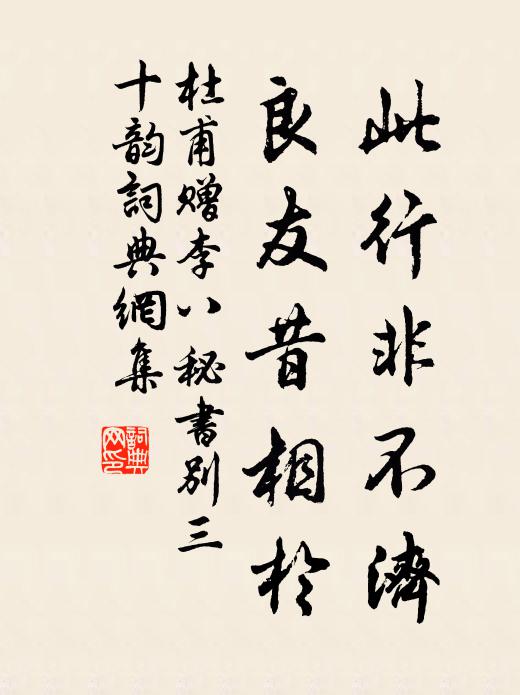 此行非不濟
良友昔相於
杜甫贈李八秘書別三
十韵詞典網集
詞典
网印